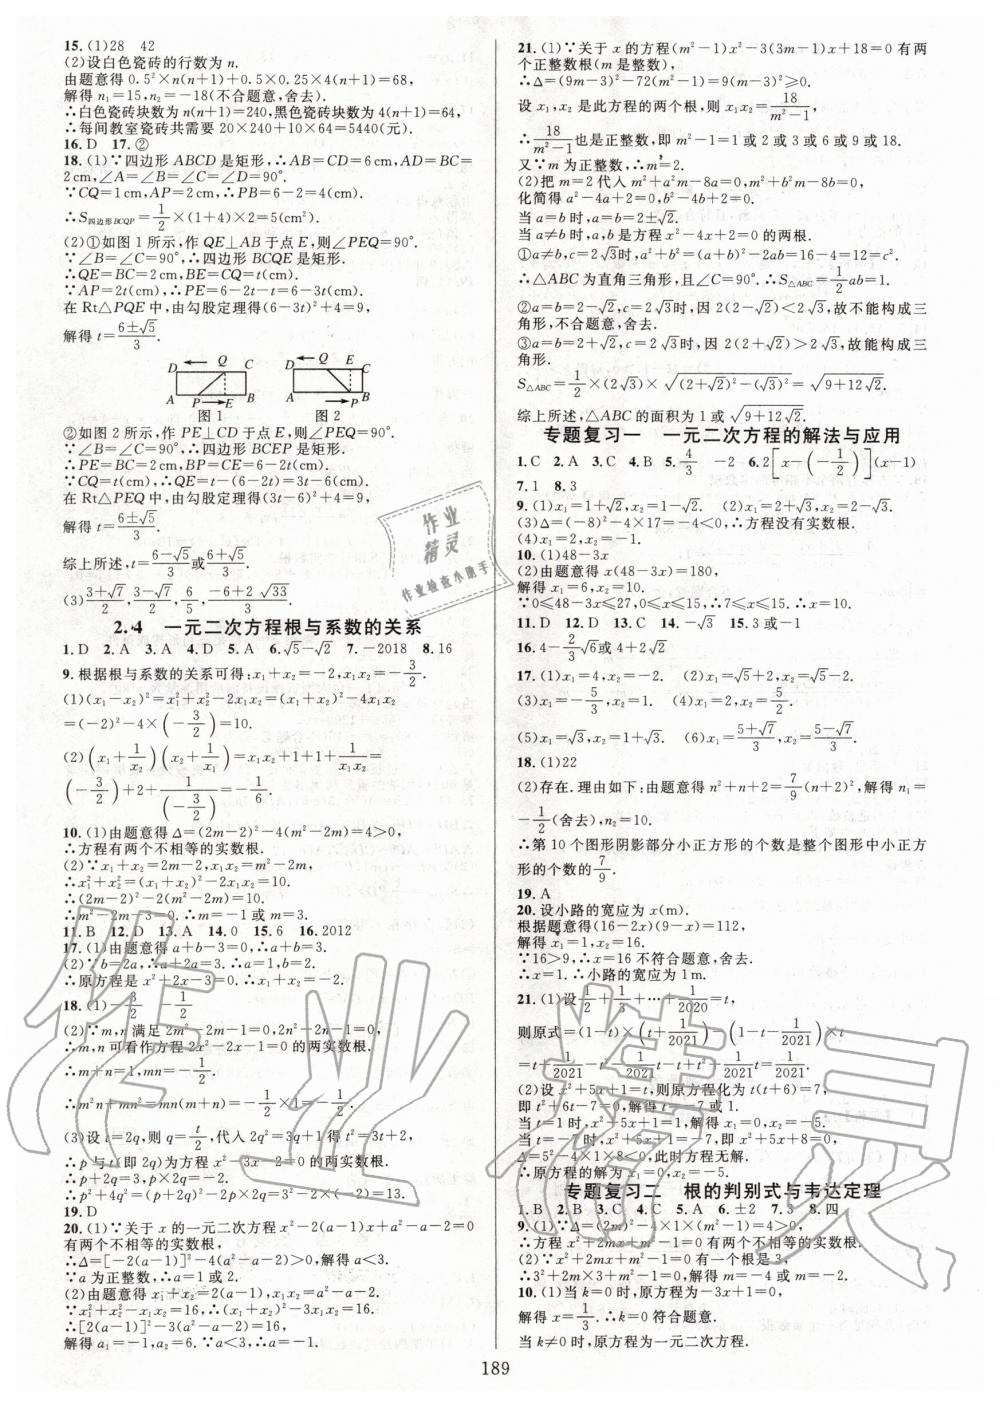 15. (1)28　42
(2)设白色瓷砖的行数为 n.
由题意得 0.5²×n(n+1)+0.5×0.25×4(n+1)=68,
解得 n₁=15,n₂=-18(不合题意,舍去).
∴白色瓷砖块数为 n(n+1)=240,黑色瓷砖块数为 4(n+1)=64,
∴每间教室瓷砖共需要 20×240+10×64=5440(元).
16. D　17. ②
18. (1)∵四边形 ABCD 是矩形,∴AB=CD=6cm,AD=BC=
2cm,∠A=∠B=∠C=∠D=90°.
∵CQ=1cm,AP=2cm,∴PB=6-2=4(cm).
∴S四边形BCQP=1/2×(1+4)×2=5(cm²).
(2)①如图 1 所示,作 QE⊥AB 于点 E,则∠PEQ=90°.
∵∠B=∠C=90°,∴四边形 BCQE 是矩形.
∴QE=BC=2cm,BE=CQ=t(cm).
∵AP=2t(cm),∴PE=6-2t-t=6-3t(cm).
在 Rt△PQE 中,由勾股定理得(6-3t)²+4=9,
解得 t=(6±√5)/3.
D Q C A P E B
D E C A P B
图 1　图 2
②如图 2 所示,作 PE⊥CD 于点 E,则∠PEQ=90°.
∵∠B=∠C=90°,∴四边形 BCEP 是矩形.
∴PE=BC=2cm,BP=CE=6-2t(cm).
∵CQ=t(cm),∴QE=t-(6-2t)=3t-6(cm).
在 Rt△PEQ 中,由勾股定理得(3t-6)²+4=9,
解得 t=(6±√5)/3.
综上所述,t=(6-√5)/3或(6+√5)/3.
(3)(3+√7)/2,(3-√7)/2,6/5,(-6+2√33)/3.
2.4　一元二次方程根与系数的关系
1. D　2. A　3. A　4. D　5. A　6. √5-√2　7. -2018　8. 16
9. 根据根与系数的关系可得:x₁+x₂=-2,x₁x₂=-3/2.
(1)(x₁-x₂)²=x₁²+x₂²-2x₁x₂=(x₁+x₂)²-4x₁x₂
=(-2)²-4×(-3/2)=10.
(2)(x₁+1/x₂)(x₂+1/x₁)=x₁x₂+1+1+1/(x₁x₂)=
(-3/2)+2+1/(-3/2)=-1/6.
10. (1)由题意得Δ=(2m-2)²-4(m²-2m)=4>0,
∴方程有两个不相等的实数根.
(2)∵x₁+x₂=2m-2,x₁x₂=m²-2m,
∴x₁²+x₂²=(x₁+x₂)²-2x₁x₂=10.
∴(2m-2)²-2(m²-2m)=10.
∴m²-2m-3=0.∴m=-1 或 m=3.
11. B　12. D　13. A　14. 0　15. 6　16. 2012
17. (1)由题意得 a+b-3=0,∴a+b=3.
(2)∵b=2a,∴a+2a=3.∴a=1,b=2.
∴原方程是 x²+2x-3=0.∴x₁=1,x₂=-3.
18. (1)-3/2　-1/2
(2)∵m,n 满足 2m²-2m-1=0,2n²-2n-1=0,
∴m,n 可看作方程 2x²-2x-1=0 的两实数根.
∴m+n=1,mn=-1/2.
∴m²n+mn²=mn(m+n)=-1/2×1=-1/2.
(3)设 t=2q,则 q=t/2,代入 2q²=3q+1 得 t²=3t+2.
∴p 与 t(即 2q)为方程 x²-3x-2=0 的两实数根.
∴p+2q=3,p×2q=-2.
∴p²+4q²=(p+2q)²-2p×2q=3²-2×(-2)=13.
19. D
20. (1)∵关于 x 的一元二次方程 x²-2(a-1)x+a²-a-2=0
有两个不相等的实数根,
∴Δ=[-2(a-1)]²-4(a²-a-2)>0,解得 a<3.
∵a 为正整数,∴a=1 或 2.
(2)由题意得 x₁+x₂=2(a-1),x₁x₂=a²-a-2.
∵x₁²+x₂²-x₁x₂=16,∴(x₁+x₂)²-3x₁x₂=16.
∴[2(a-1)]²-3(a²-a-2)=16,
解得 a₁=-1,a₂=6.∵a<3,∴a=-1.
21. (1)∵关于 x 的方程(m²-1)x²-3(3m-1)x+18=0 有两
个正整数根(m 是整数),
∴Δ=(9m-3)²-72(m²-1)=9(m-3)²≥0.
设 x₁,x₂ 是此方程的两个根,则 x₁x₂=18/(m²-1),
∴18/(m²-1)也是正整数,即 m²-1=1 或 2 或 3 或 6 或 9 或 18.
又∵m 为正整数,∴m=2.
(2)把 m=2 代入 m²+a²m-8a=0,m²+b²m-8b=0,
化简得 a²-4a+2=0,b²-4b+2=0.
当 a=b 时,a=b=2±√2.
当 a≠b 时,a,b 是方程 x²-4x+2=0 的两根.
①a≠b,c=2√3时,a²+b²=(a+b)²-2ab=16-4=12=c².
∴△ABC 为直角三角形,且∠C=90°.∴S△ABC=1/2ab=1.
②a=b=2-√2,c=2√3时,因 2(2-√2)<2√3,故不能构成三
角形,不合题意,舍去.
③a=b=2+√2,c=2√3时,因 2(2+√2)>2√3,故能构成三
角形.
S△ABC=1/2×(2√3)×√((2+√2)²-(√3)²)=√(9+12√2).
综上所述,△ABC 的面积为 1 或√(9+12√2).
专题复习一　一元二次方程的解法与应用
1. C　2. A　3. C　4. B　5. 4/3　-2　6. 2[x-(-1/2)](x-1)
7. 1　8. 3
9. (1)x₁=1+√2,x₂=1-√2.　(2)x₁=2+√3,x₂=2-√3.
(3)Δ=(-8)²-4×17=-4<0,∴方程没有实数根.
(4)x₁=2,x₂=-1.
10. (1)48-3x
(2)由题意得 x(48-3x)=180,
解得 x₁=6,x₂=10.
∵0≤48-3x≤17,∴7≤x≤16.∴x=10.
11. D　12. D　13. C　14. -√3　15. 3 或-1
16. 4-2/3√6或 4+2√2
17. (1)x₁=4,x₂=-2.　(2)x₁=√5+2,x₂=√5-2.
(3)x₁=-5/3,x₂=1.　(4)x₁=2,x₂=5/2.
(5)x₁=√3,x₂=1+√3.　(6)x₁=(5+√7)/3,x₂=(5-√7)/3.
18. (1)22
(2)存在.理由如下:由题意得 n²+n+2=7/9(n+2)²,解得 n₁=
-1/2(舍去),n₂=10.
∴第 10 个图形阴影部分小正方形的个数是整个图形中小正方
形的个数的7/9.
19. A
20. 设小路的宽应为 x(m).
根据题意得(16-2x)(9-x)=112,
解得 x₁=1,x₂=16.
∵16>9,∴x=16 不符合题意,舍去.
∴x=1.∴小路的宽应为 1m.
21. (1)设1/2+1/3+…+1/2020=t,
则原式=(1-t)×(t+1/2021)-(1-t-1/2021)×t
=t+1/2021-t²-1/2021t-t+t²+1/2021t=1/2021.
(2)设 x²+5x+1=t,则原方程化为 t(t+6)=7,
即 t²+6t-7=0,解得 t=-7 或 1.
当 t=1 时,x²+5x+1=1,解得 x=0 或 x=-5.
当 t=-7 时,x²+5x+1=-7,即 x²+5x+8=0,
Δ=5²-4×1×8<0,此时方程无解.
∴原方程的解为 x₁=0,x₂=-5.
专题复习二　根的判别式与韦达定理
1. B　2. B　3. C　4. C　5. A　6. ±2　7. 3　8. 四
9. (1)∵Δ=(2m)²-4×1×(m²-1)=4>0,
∴方程 x²+2mx+m²-1=0 有两个不相等的实数根.
(2)∵x²+2mx+m²-1=0 有一个根是 3,
∴3²+2m×3+m²-1=0,解得 m=-4 或 m=-2.
10. (1)当 k=0 时,原方程为-3x+1=0,
解得 x=1/3.∴k=0 符合题意.
当 k≠0 时,原方程为一元二次方程.
189
作业精灵
作业检查小助手
作业精灵